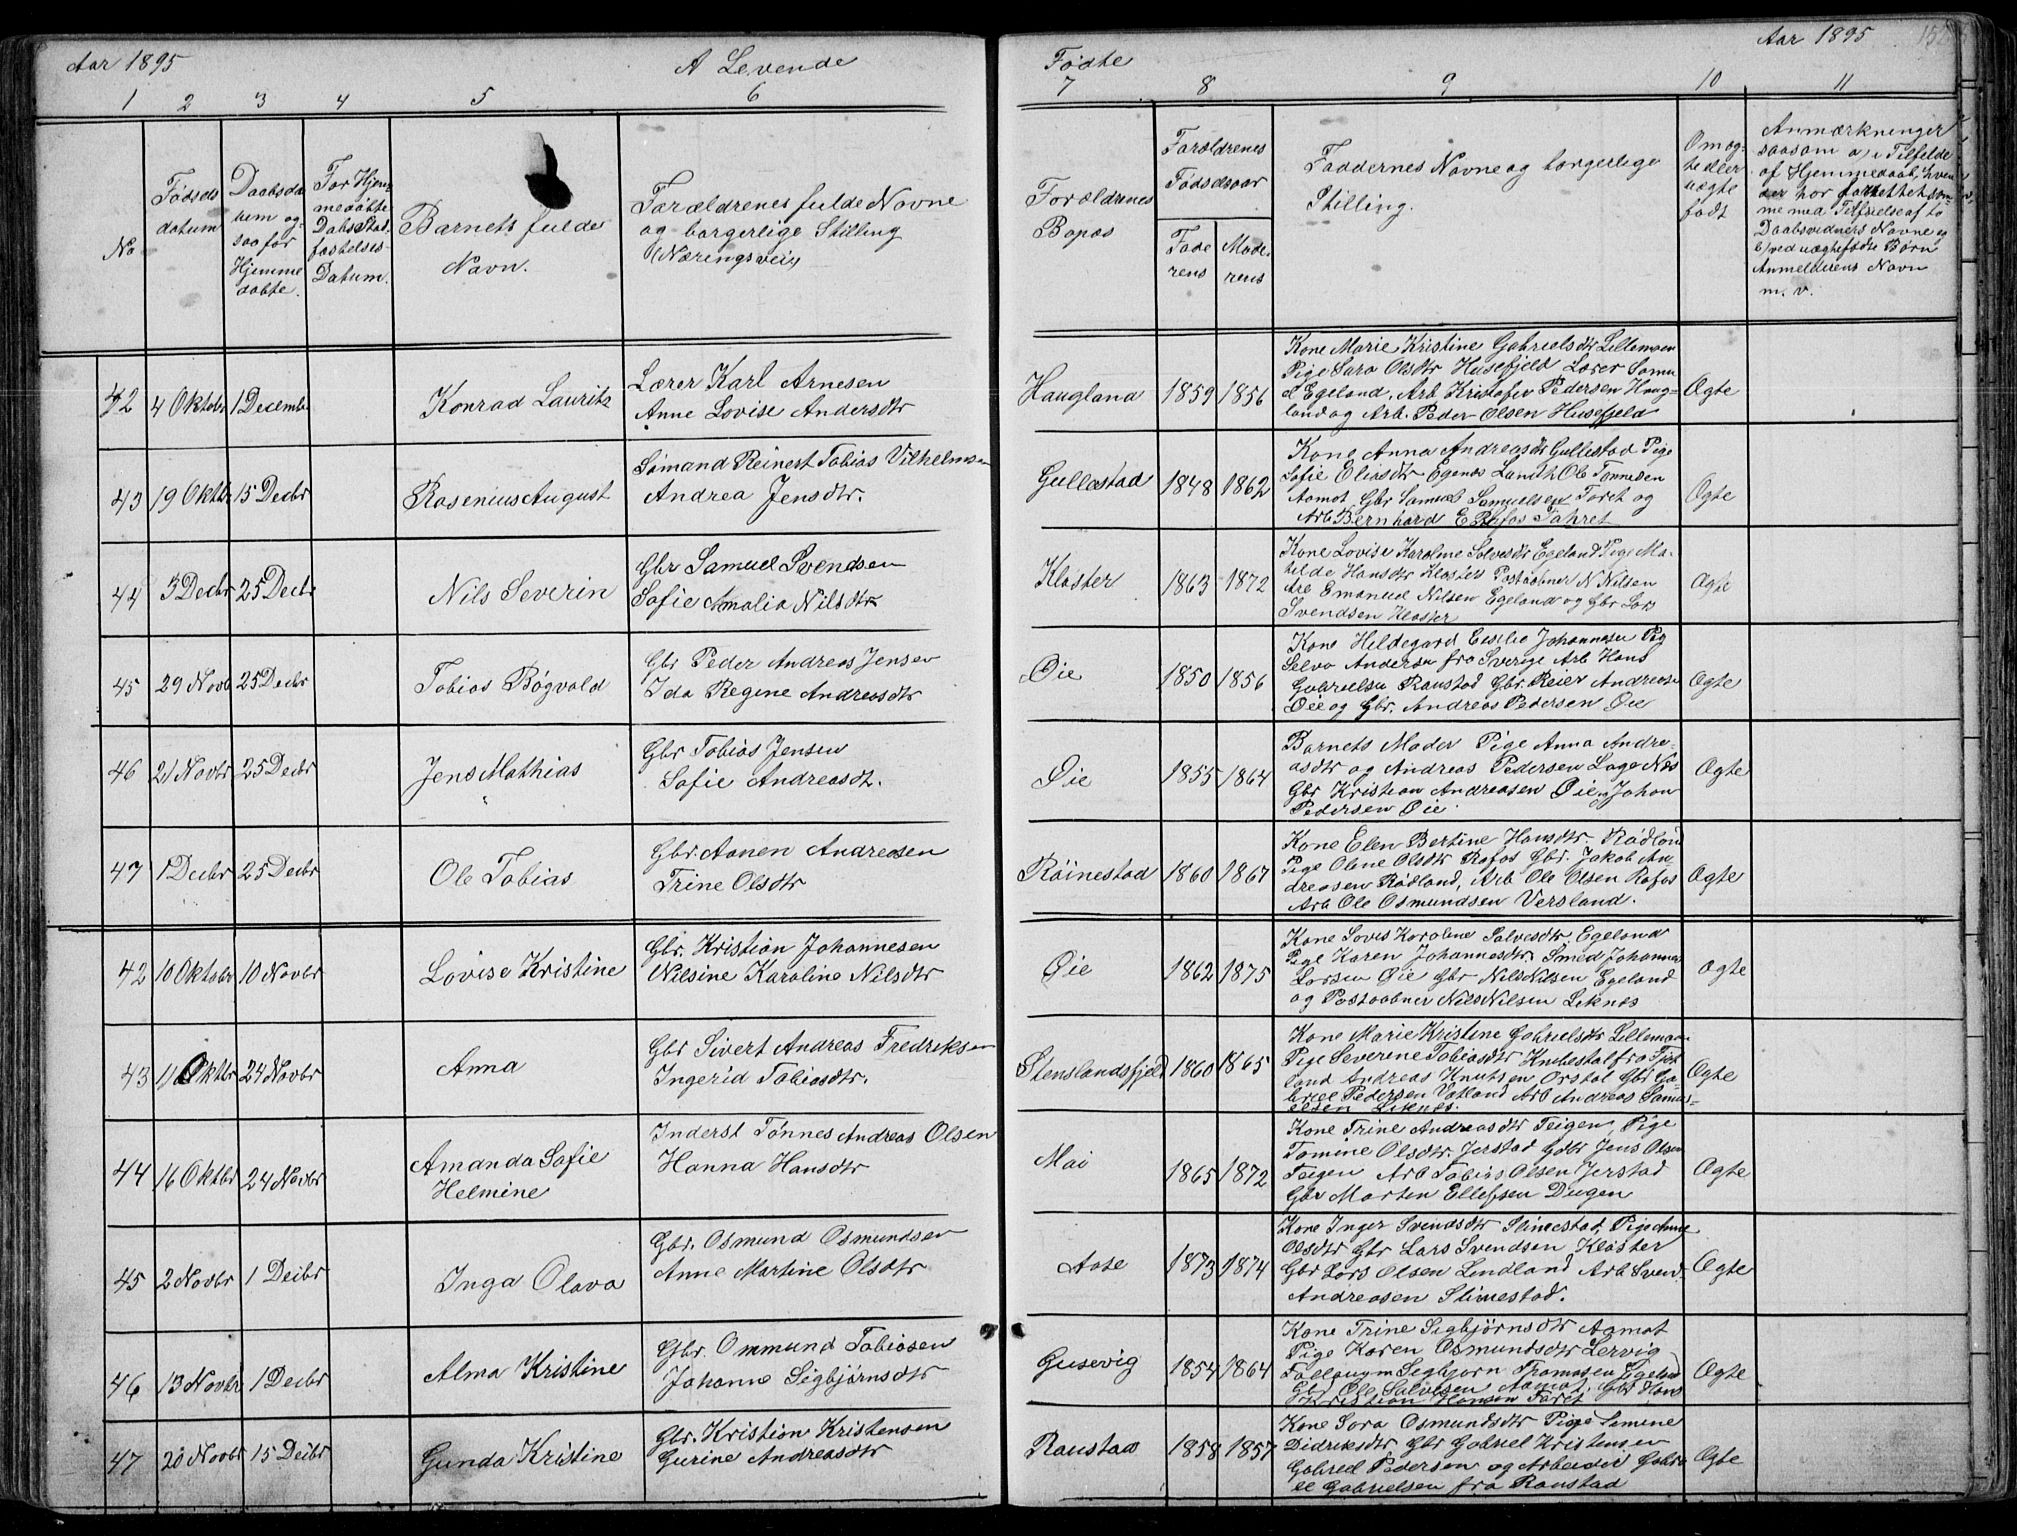 Aar 1895
A Levende
Fødte
Aar 1895
152
1 2 3 4 5 6 7 8 9 10 11
No
Fødsels
datum
Daabsda
tum og
saa for
Hjemme
døbte.
For Hjem
medøbte
Daabs Stad
fæstelses
Datum.
Barnets fulde
Navn.
Forældrenes fulde Navne
og borgerlige Stilling
(Næringsvei)
Forældrenes
Bopæs
Forældrenes
Fødselsaar
Fade
rens
Mode
rens
Faddernes Navne og borgerlige
Stilling.
Om æg-
te eller
uægte
født
Anmærkninger
saasom a, i Tilfælde
af Hjemmedaab, hven
der har forrettet sam
me med Tilføielse af to
Daabsvidners Navne og
b) ved uægtefødte Børn
Anmelderens Navn
m. v.
42 4 Oktobr 1 Decembr
Konrad Lauritz
Lærer Karl Arnesen
Anne Lovise Andersdtr
Haugland 1859 1856
Kone Marie Kristine Gabrielsdtr Lillemoen
Pige Sara Olsdtr Husefjeld Lærer Samu
el Egeland, Arb Kristofer Pedersen Haug-
land og Arb. Peder Olsen Husefjeld
Ægte
43 19 Oktbr 15 Decbr
Rosenius August
Sømand Reinert Tobias Vilhelmsen
Andrea Jensdtr.
Gullestad 1848 1862
Kone Anna Andreasdtr Gullestad Pige
Sofie Eliasdtr Egenes Landh Ole Tønnesen
Aamot Gbr Samuel Samuelsen Foret og
Arb. Bernhard E Rafos Fahret
Ægte
44 3 Decbr 25 Decbr
Nils Severin
Gbr Samuel Svendsen
Sofie Amalia Nilsdtr
Kloster 1863 1872
Kone Lovise Karoline Salvesdtr Egeland Pige Ma-
tilde Hansdtr Kloster Postaabner N Nilsen
Arb Emanuel Nilsen Egeland og Gbr Lars
Svendsen Kloster
Ægte
45 29 Novb 25 Decbr
Tobias Bøgvald
Gbr Peder Andreas Jensen
Ida Regine Andreasdtr
Øie 1850 1856
Kone Hildegard Emilie Johannesen Pig
Selva Andersen fra Sverige Arb Hans
Gabrielsen Raustad Gbr. Reier Andreasen
Øie og Gbr. Andreas Pedersen Øie
Ægte
46 21 Novbr 25 Decbr
Jens Mathias
Gbr Tobias Jensen
Sofie Andreasdt.
Øie 1855 1864
Barnets Moder Pige Anna Andre-
asdtr og Andreas Pedersen Lage Næs
Gbr Kristian Andreasen Øie og Johan
Pedersen Øie
Ægte
47 1 Decbr 25 Decbr
Ole Tobias
Gbr. Aanen Andreasen
Trine Olsdtr
Røinestad 1860 1867
Kone Elen Bertine Hansdtr. Rødland
Pige Oline Olsdtr Rafos Gbr. Jakob An-
dreasen Rødland, Arb Ole Olsen Rafos
Arb Ole Osmundsen Versland.
Ægte
42 10 Oktobr 10 Novbr
Lovise Kristine
Gbr. Kristian Johannesen
Nilsine Karoline Nilsdtr
Øie 1862 1875
Kone Lovis Karoline Salvesdtr. Egeland
Pige Karen Johannesdtr. Smed Johannes
Larsen Øie Gbr Nils Nilsen Egeland
og Postaabner Nils Nilsen Liknes
Ægte
43 11 Oktbr 24 Novbr
Anna
Gbr Sivert Andreas Fredriksen
Ingerid Tobiasdtr.
Stenslandsfjeld 1860 1865
Kone Marie Kristine Gabrielsdtr Lillemoen
Pige Severine Tobiasdtr Knibestøl fra Fjot
land Andreas Knutsen Orstøl Gbr Ga-
briel Pedersen Vatland Arb Andreas Samu-
elsen Liknes.
Ægte
44 16 Oktbr 24 Novbr
Amanda Sofie
Helmine
Inderst Tønnes Andreas Olsen
Hanna Hansdtr
Moi 1865 1872
Kone Trine Andreasdtr Feigen, Pige
Tomine Olsdtr. Jerstad Gbr Jens Olsen
Feigen Arb Tobias Olsen Jerstad
Gbr Morten Ellefsen Dugen
Ægte
45 2 Novbr 1 Decbr
Inga Olava
Gbr. Osmund Osmundsen
Anne Martine Olsdtr
Aase 1873 1874
Kone Inger Svendsdtr Slimestad, Pige Anne
Olsdtr Gbr Lars Svendsen Kloster
Gbr Lars Olsen Lindland Arb Svend
Andreasen Slimestad.
Ægte
46 13 Novbr 1 Decbr
Alma Kristine
Gbr. Ommund Tobiasen
Johanne Sigbjørnsdtr
Gusevig 1854 1864
Kone Trine Sigbjørnsdtr Aamot
Pige Karen Osmundsdtr Lervig
Sigbjørn Thomasen
Gbr Ole Salvesen Aamot, Gbr Hans
Kristian Hansen Foret
Ægte
47 20 Novbr 15 Decbr
Gunda Kristine
Gbr. Kristian Kristensen
Gurine Andreasdtr
Raustad 1858 1857
Kone Sara Osmundsdtr Pige Simine
Didriksdtr Gbr Gabriel Kristensen
Gabriel Pedersen og Arbeider Gabri
el Gabrielsen fra Raustad
Ægte